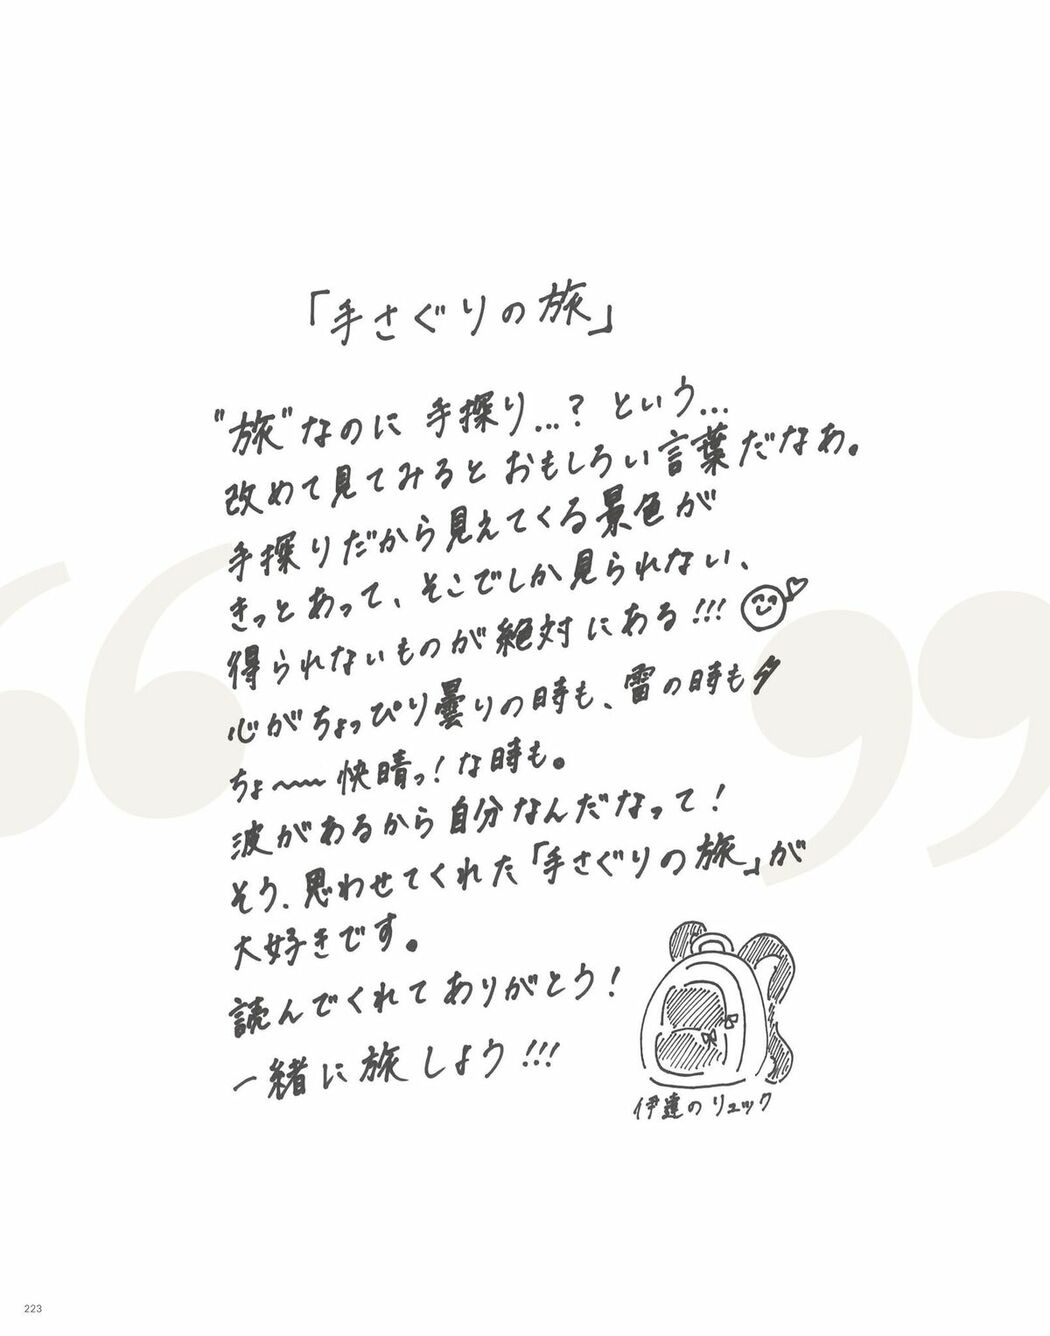 「手さぐりの旅」
"旅"なのに 手探り...? という...
改めて見てみると おもしろい言葉だなあ。
手探りだから見えてくる景色が
きっとあって、そこでしか見られない、
得られないものが絶対にある!!!
心がちょっぴり曇りの時も、雷の時も
ちょ〜〜〜快晴っ!な時も。
波があるから自分なんだなって!
そう、思わせてくれた「手さぐりの旅」が
大好きです。
読んでくれてありがとう!
一緒に旅しよう!!!
伊達のリュック
223